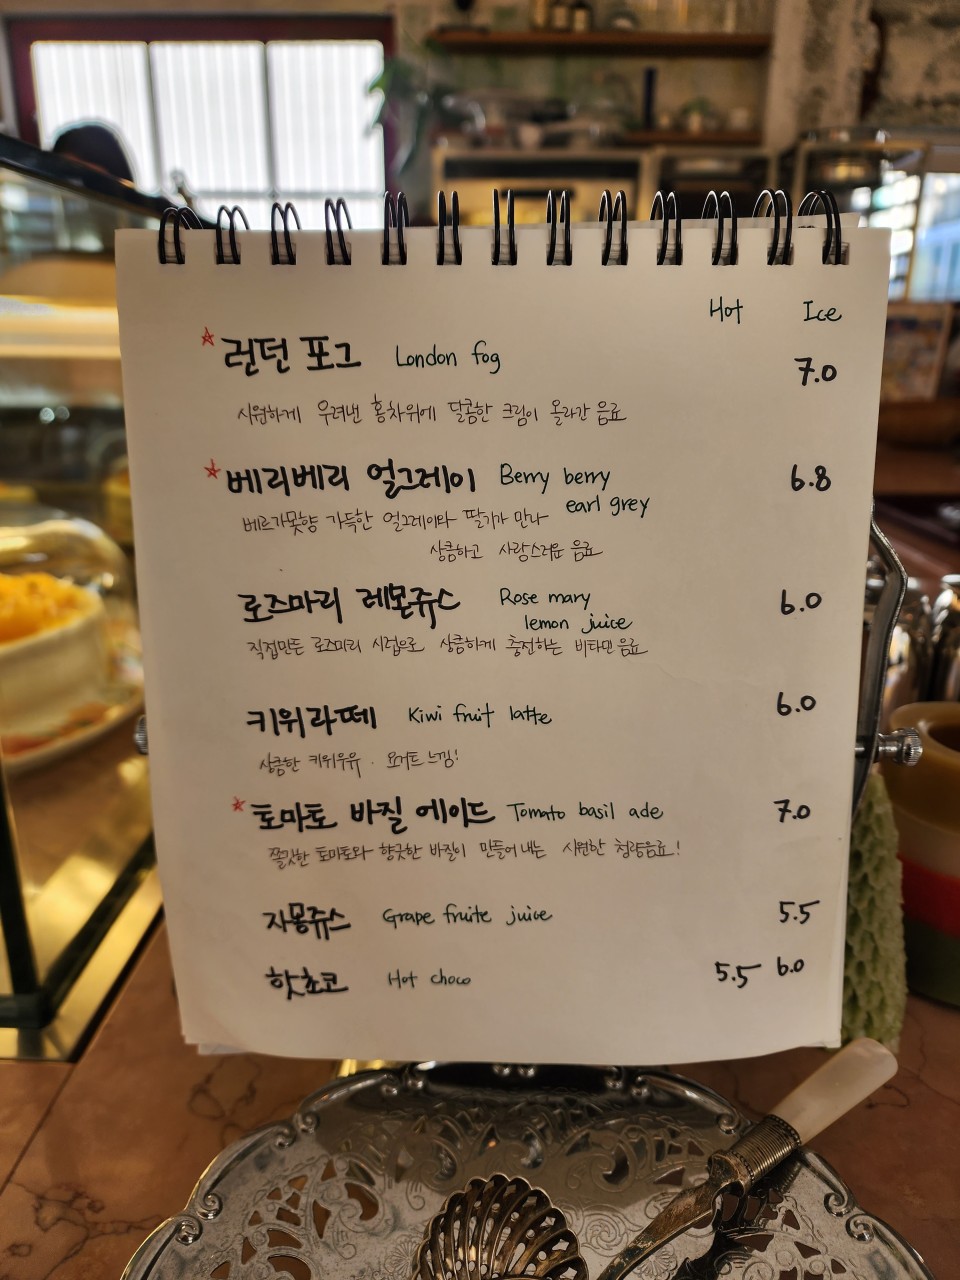 Hot Ice
☆ 런던 포그 London fog 7.0
시원하게 우려낸 홍차위에 달콤한 크림이 올라간 음료
☆ 베리베리 얼그레이 Berry berry 6.8
earl grey
베르가못향 가득한 얼그레이와 딸기가 만나
상큼하고 사랑스러운 음료
로즈마리 레몬쥬스 Rose mary 6.0
lemon juice
직접만든 로즈마리 시럽으로 상큼하게 충전하는 비타민 음료
키위라떼 Kiwi fruit latte 6.0
상큼한 키위우유. 요거트 느낌!
☆ 토마토 바질 에이드 Tomato basil ade 7.0
쫄깃한 토마토와 향긋한 바질이 만들어 내는 시원한 청량음료!
자몽쥬스 Grape fruite juice 5.5
핫초코 Hot choco 5.5 6.0